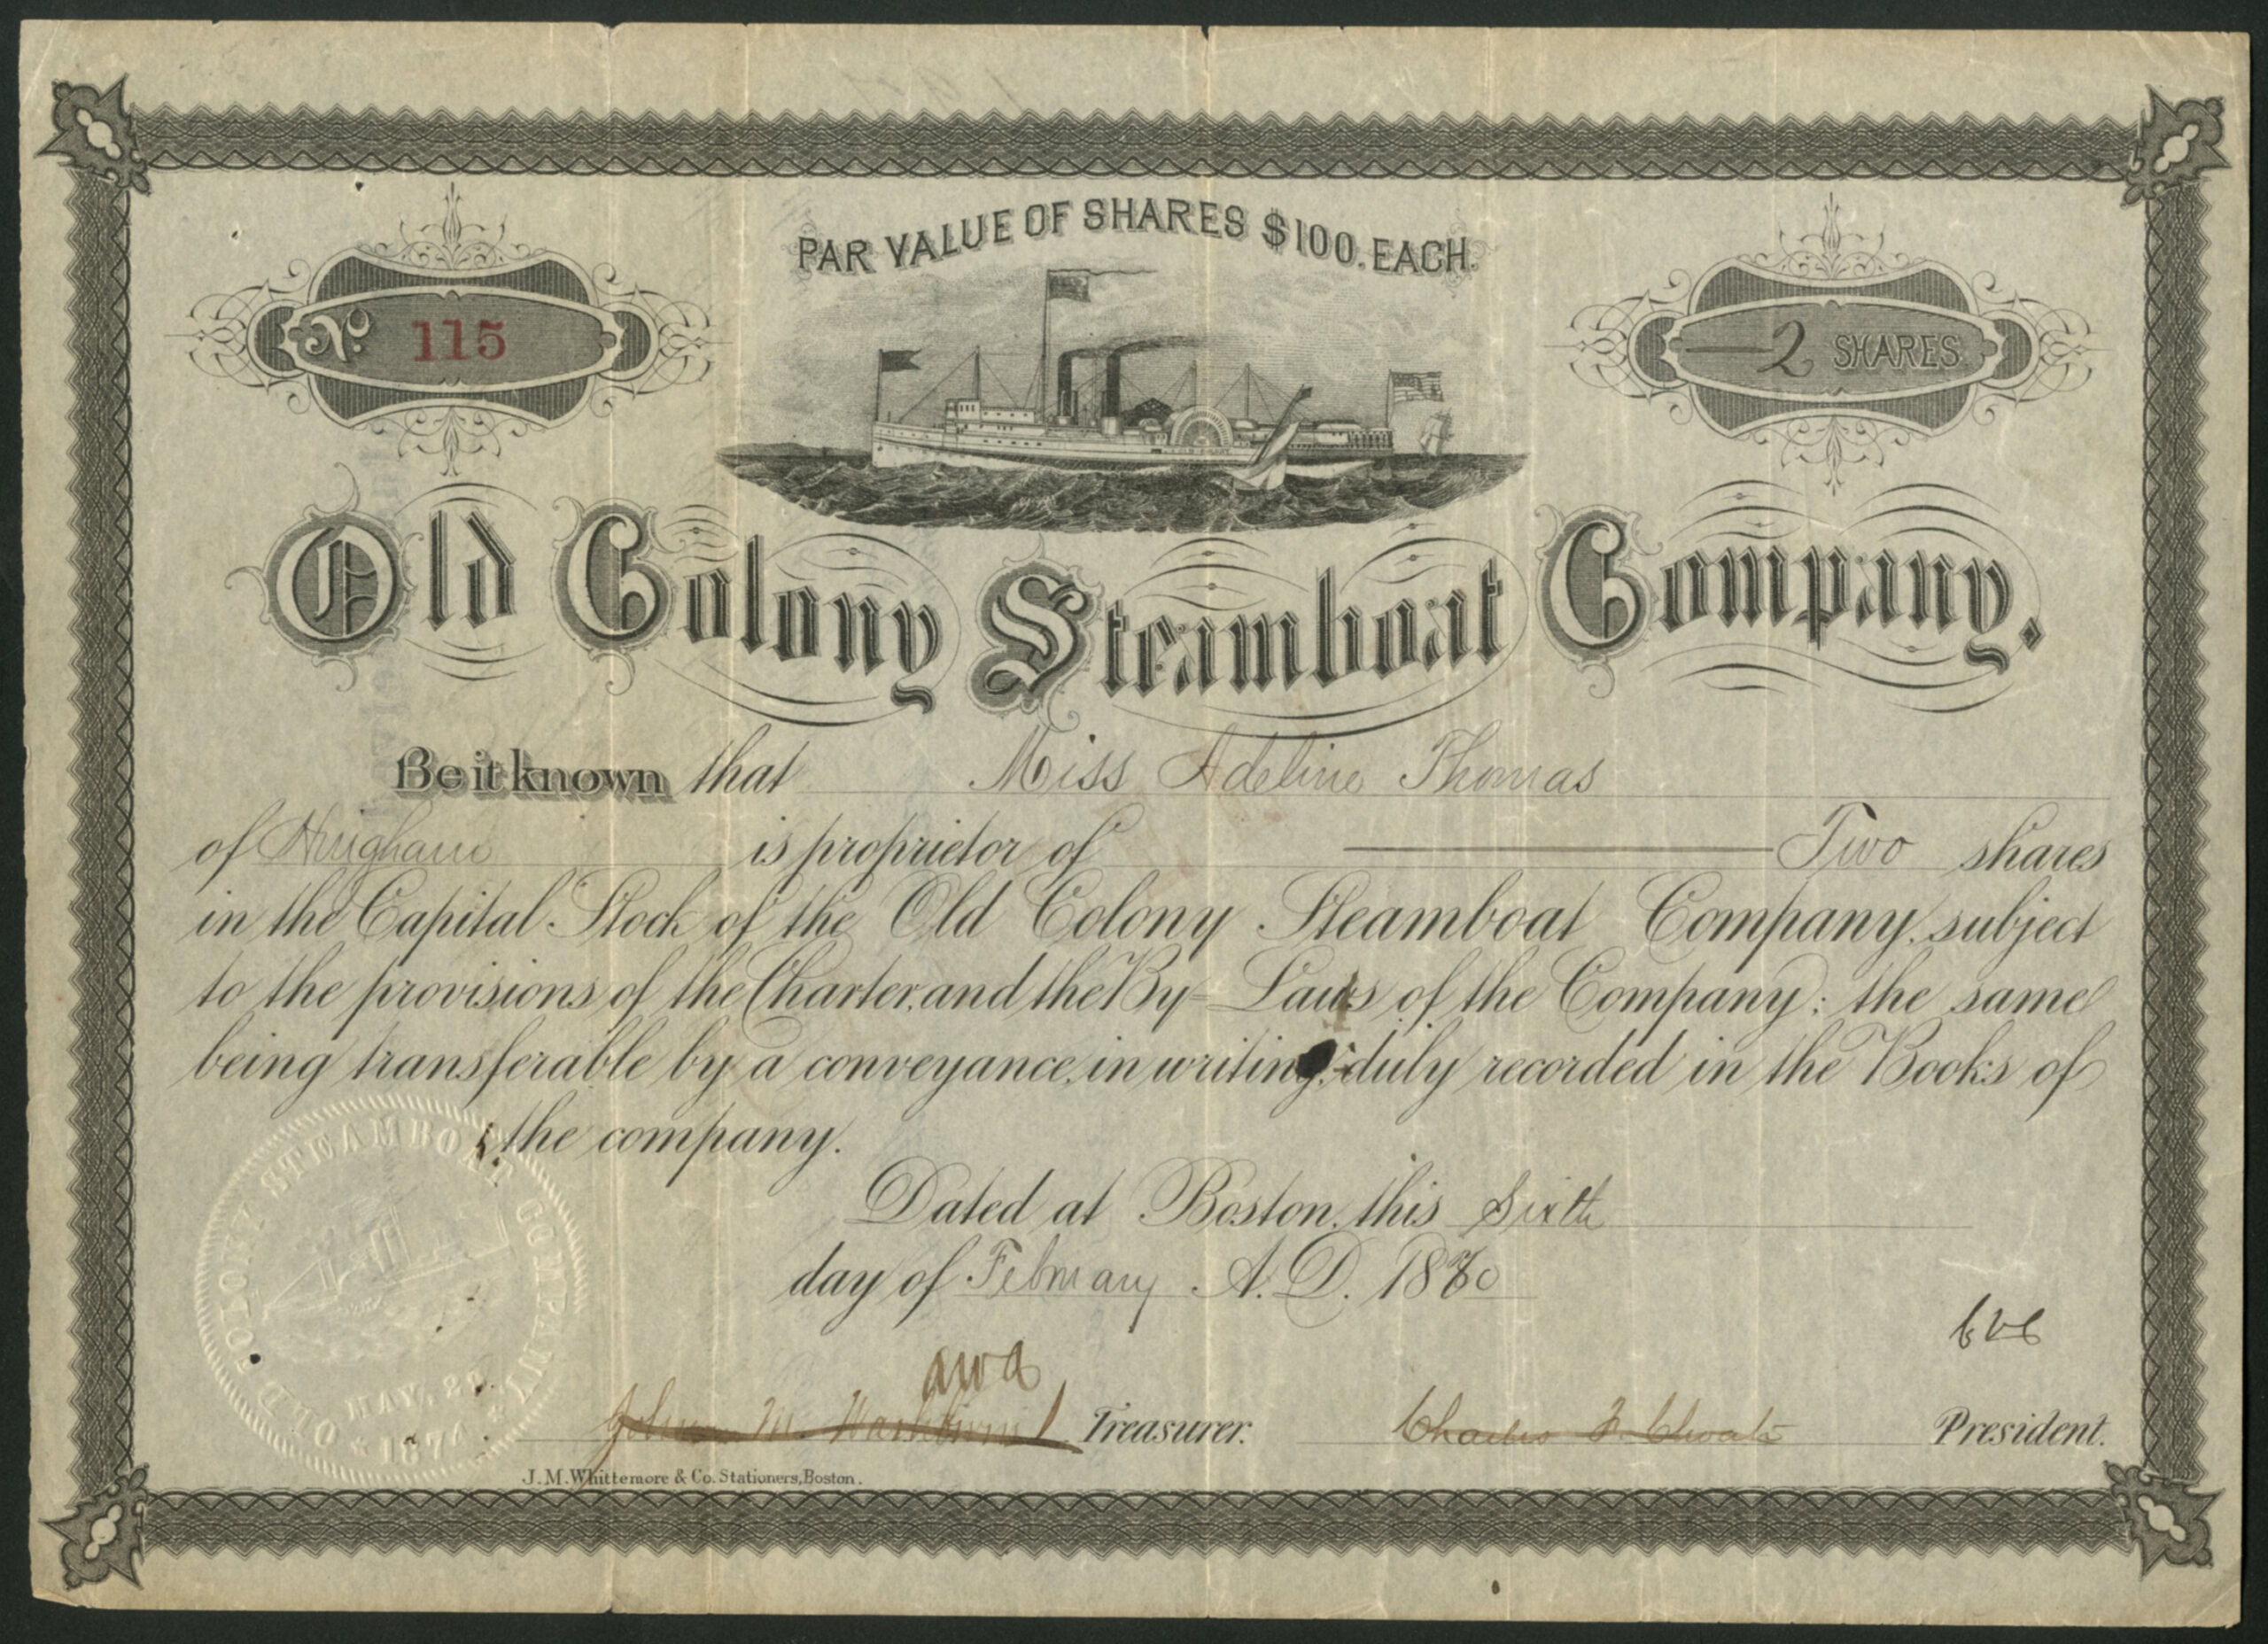 PAR VALUE OF SHARES $100. EACH.
No. 115
2 SHARES
Old Colony Steamboat Company.
Be it known that Miss Adeline Thomas
of Hingham is proprietor of Two shares
in the Capital Stock of the Old Colony Steamboat Company, subject
to the provisions of the Charter, and the By-Laws of the Company; the same
being transferable by a conveyance, in writing, duly recorded in the Books of
the company.
Dated at Boston, this Sixth
day of February A.D. 1880
John M. Washburn Treasurer.
Charles F. Choate President.
J.M. Whittemore & Co. Stationers, Boston.
OLD COLONY STEAMBOAT COMPANY
MAY, 1874